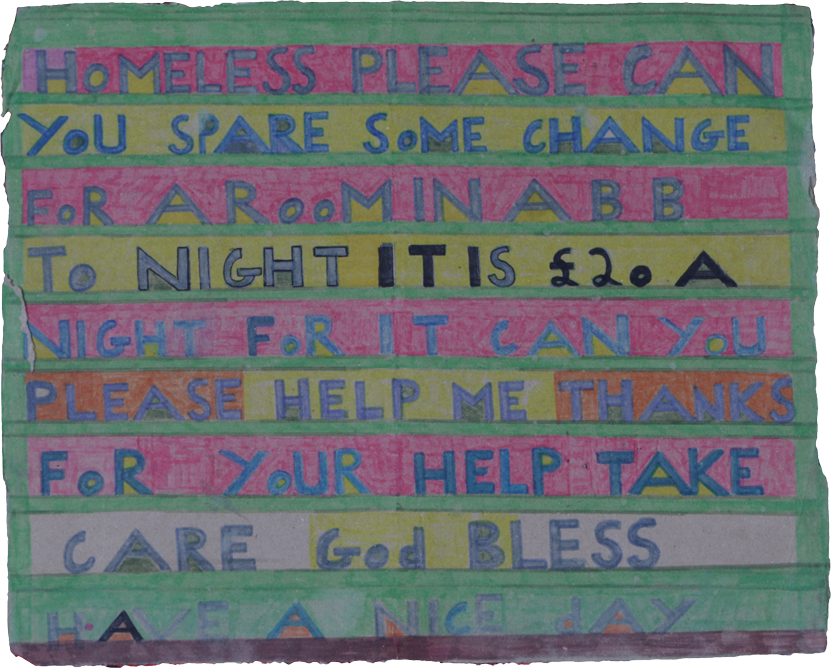 HoMELESS PLEASE CAN
YoU SPARE SoME CHANGE
FoR A RooM IN A B B
To NIGHT IT IS £20 A
NIGHT FoR IT CAN YoU
PLEASE HELP ME THANKS
FoR YoUR HELP TAKE
CARE God BLESS
HAVE A NICE dAY